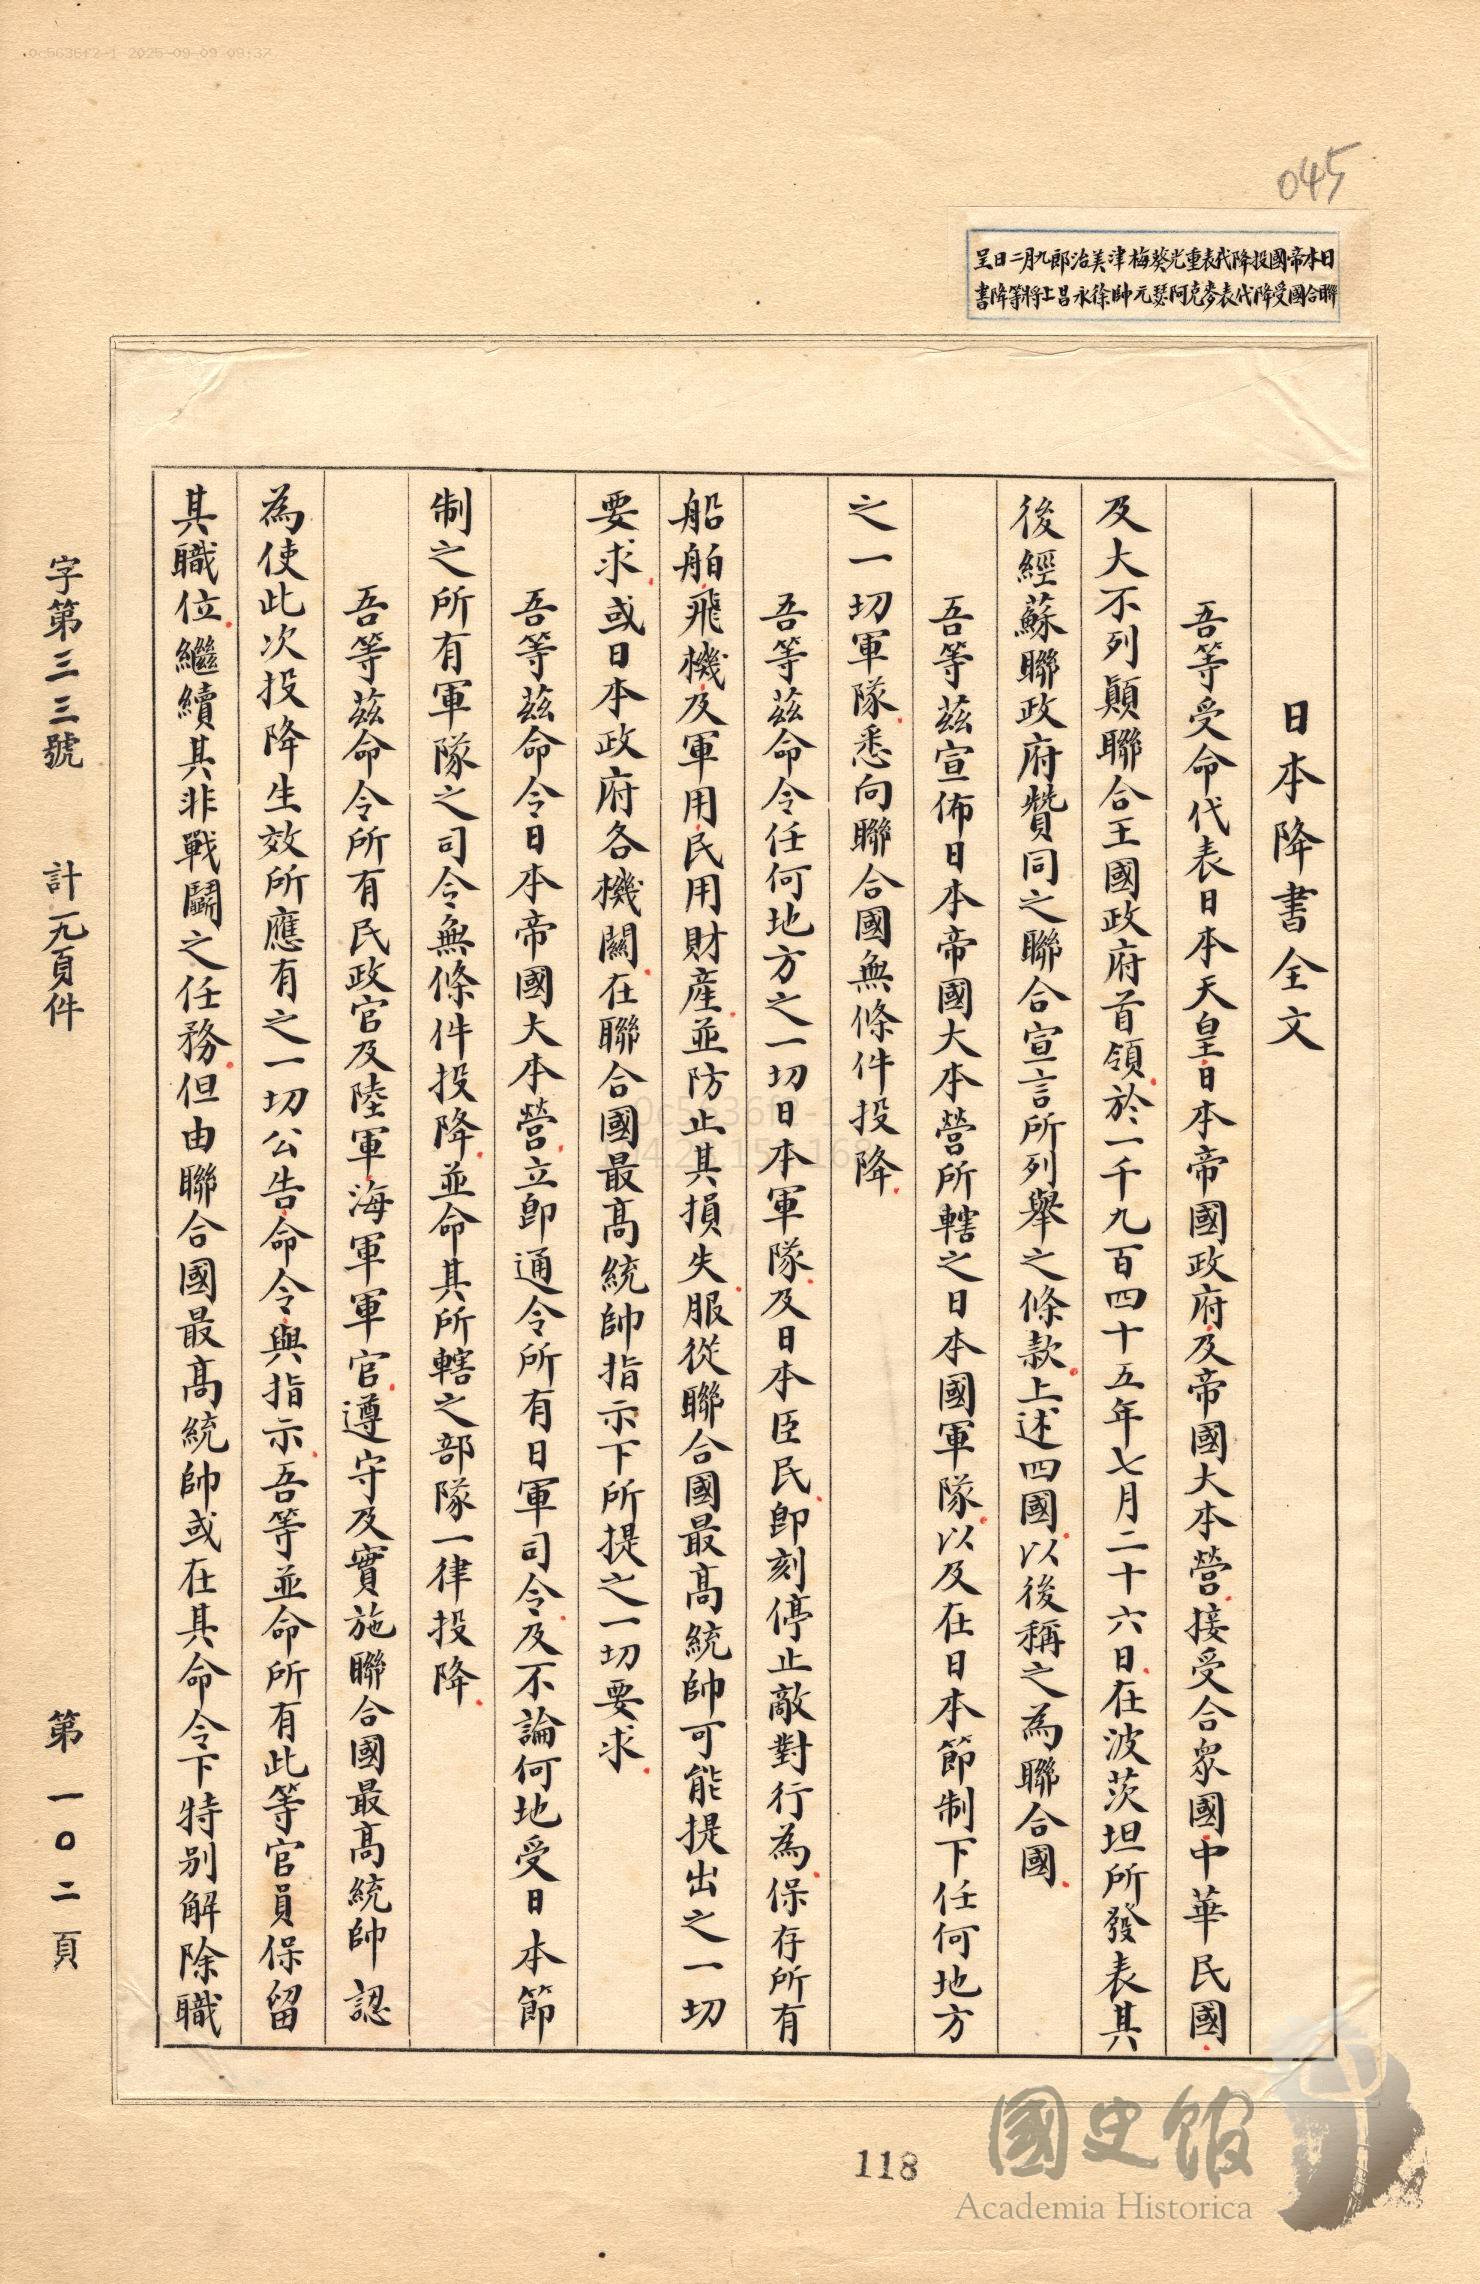 0c5636f2-1 2025-09-09 09:37
045
日本帝國投降代表重光葵梅津美治郎九月二日呈
聯合國受降代表麥克阿瑟元帥徐永昌上將等降書
日本降書全文
吾等受命代表日本天皇日本帝國政府及帝國大本營接受合眾國中華民國
及大不列顛聯合王國政府首領於一千九百四十五年七月二十六日在波茨坦所發表其
後經蘇聯政府贊同之聯合宣言所列舉之條款上述四國以後稱之為聯合國
吾等茲宣佈日本帝國大本營所轄之日本國軍隊以及在日本節制下任何地方
之一切軍隊悉向聯合國無條件投降
吾等茲命令任何地方之一切日本軍隊及日本臣民即刻停止敵對行為保存所有
船舶飛機及軍用民用財產並防止其損失服從聯合國最高統帥可能提出之一切
要求或日本政府各機關在聯合國最高統帥指示下所提之一切要求
吾等茲命令日本帝國大本營立即通令所有日軍司令及不論何地受日本節
制之所有軍隊之司令無條件投降並命其所轄之部隊一律投降
吾等茲命令所有民政官及陸軍海軍軍官遵守及實施聯合國最高統帥認
為使此次投降生效所應有之一切公告命令與指示吾等並命所有此等官員保留
其職位繼續其非戰鬭之任務但由聯合國最高統帥或在其命令下特別解除職
字第三三號 計九頁件 第一〇二頁
118
國史館
Academia Historica